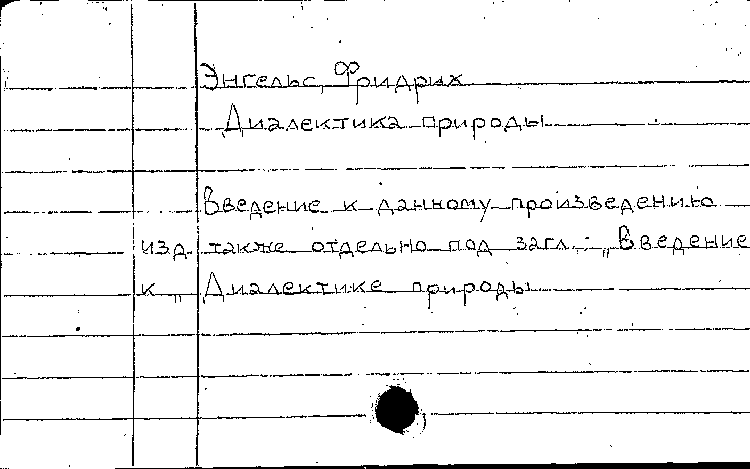 Энгельс, Фридрих
Диалектика природы
Введение к данному произведению
изд. также отдельно под загл.: „Введение
к „Диалектике природы